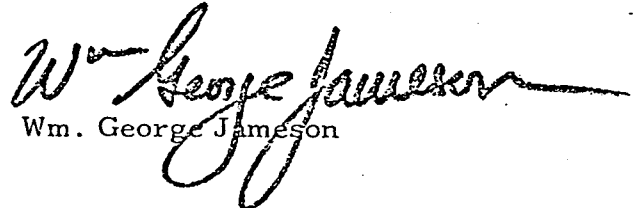 Wm George Jameson
Wm. George Jameson